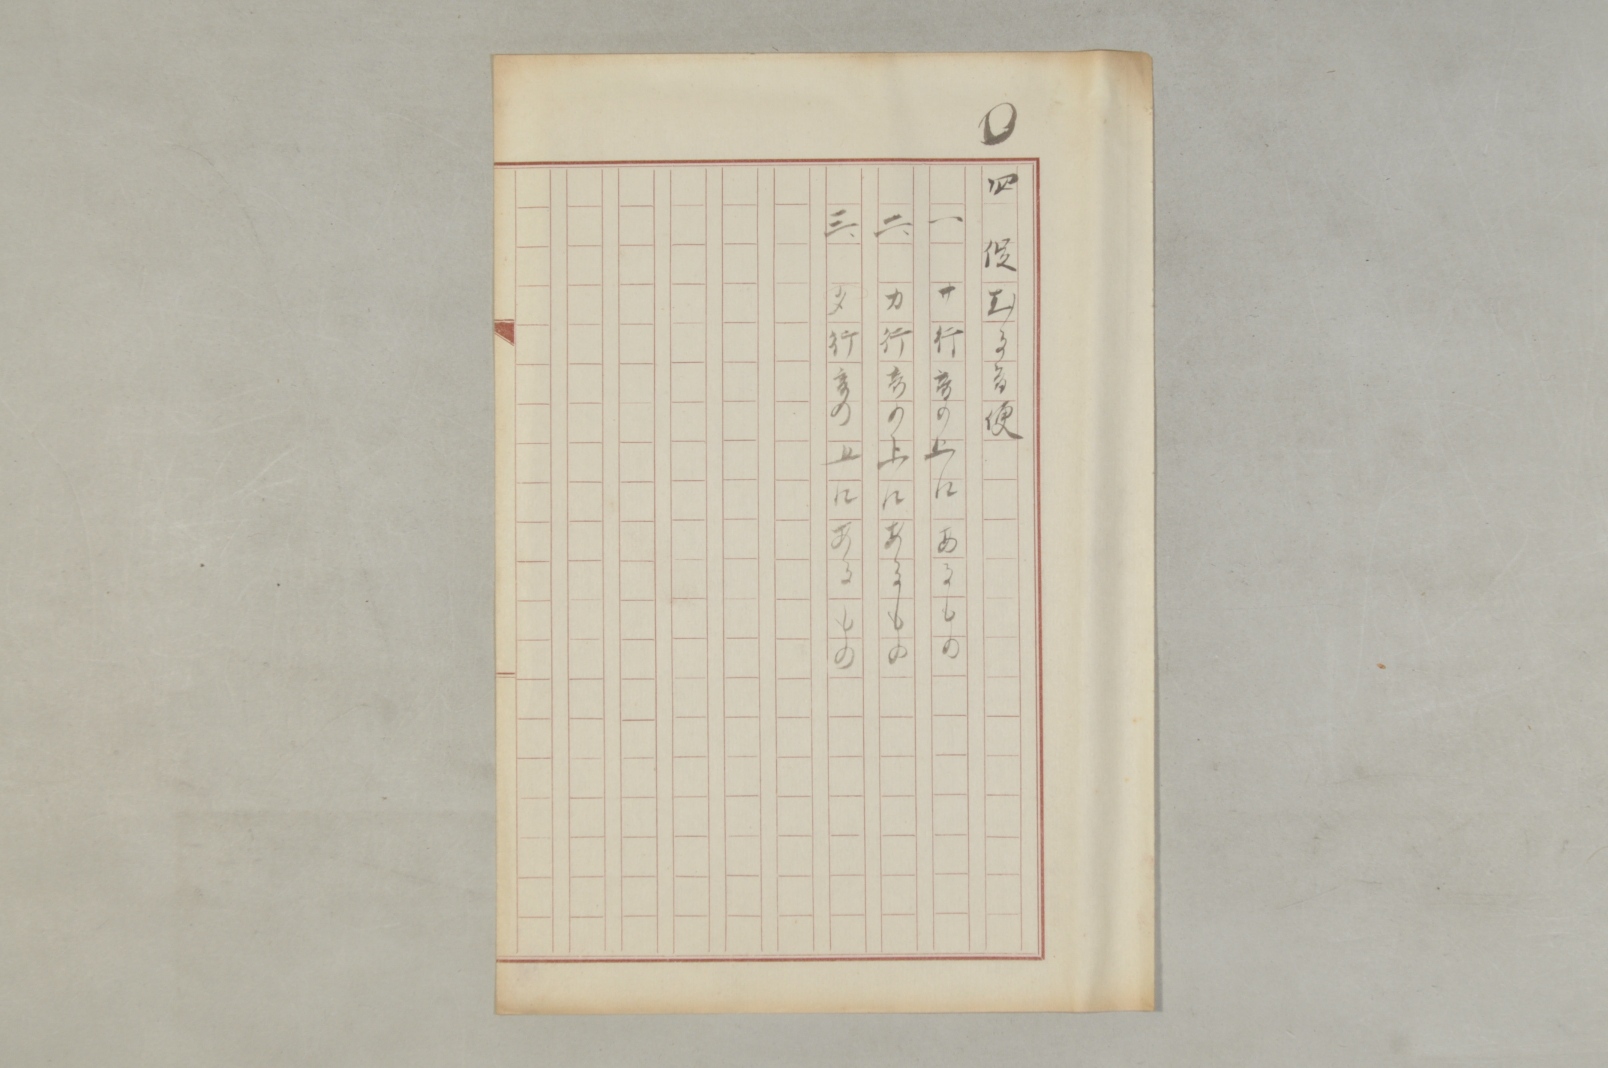 四 促まる音便
一 サ行音の上にあるもの
二、カ行音の上にあるもの
三、タ行音の上にあるもの